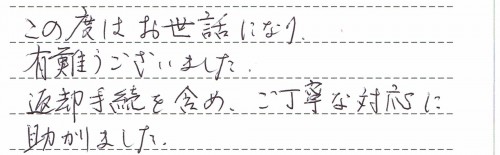 この度はお世話になり、
有難うございました。
返却手続を含め、ご丁寧な対応に
助かりました。